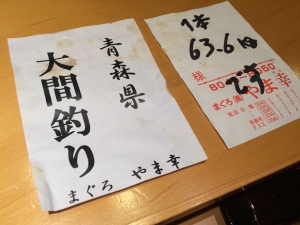 青森県
大間釣り
まぐろ やま幸
1本
63.6
様
です
まぐろ
やま幸